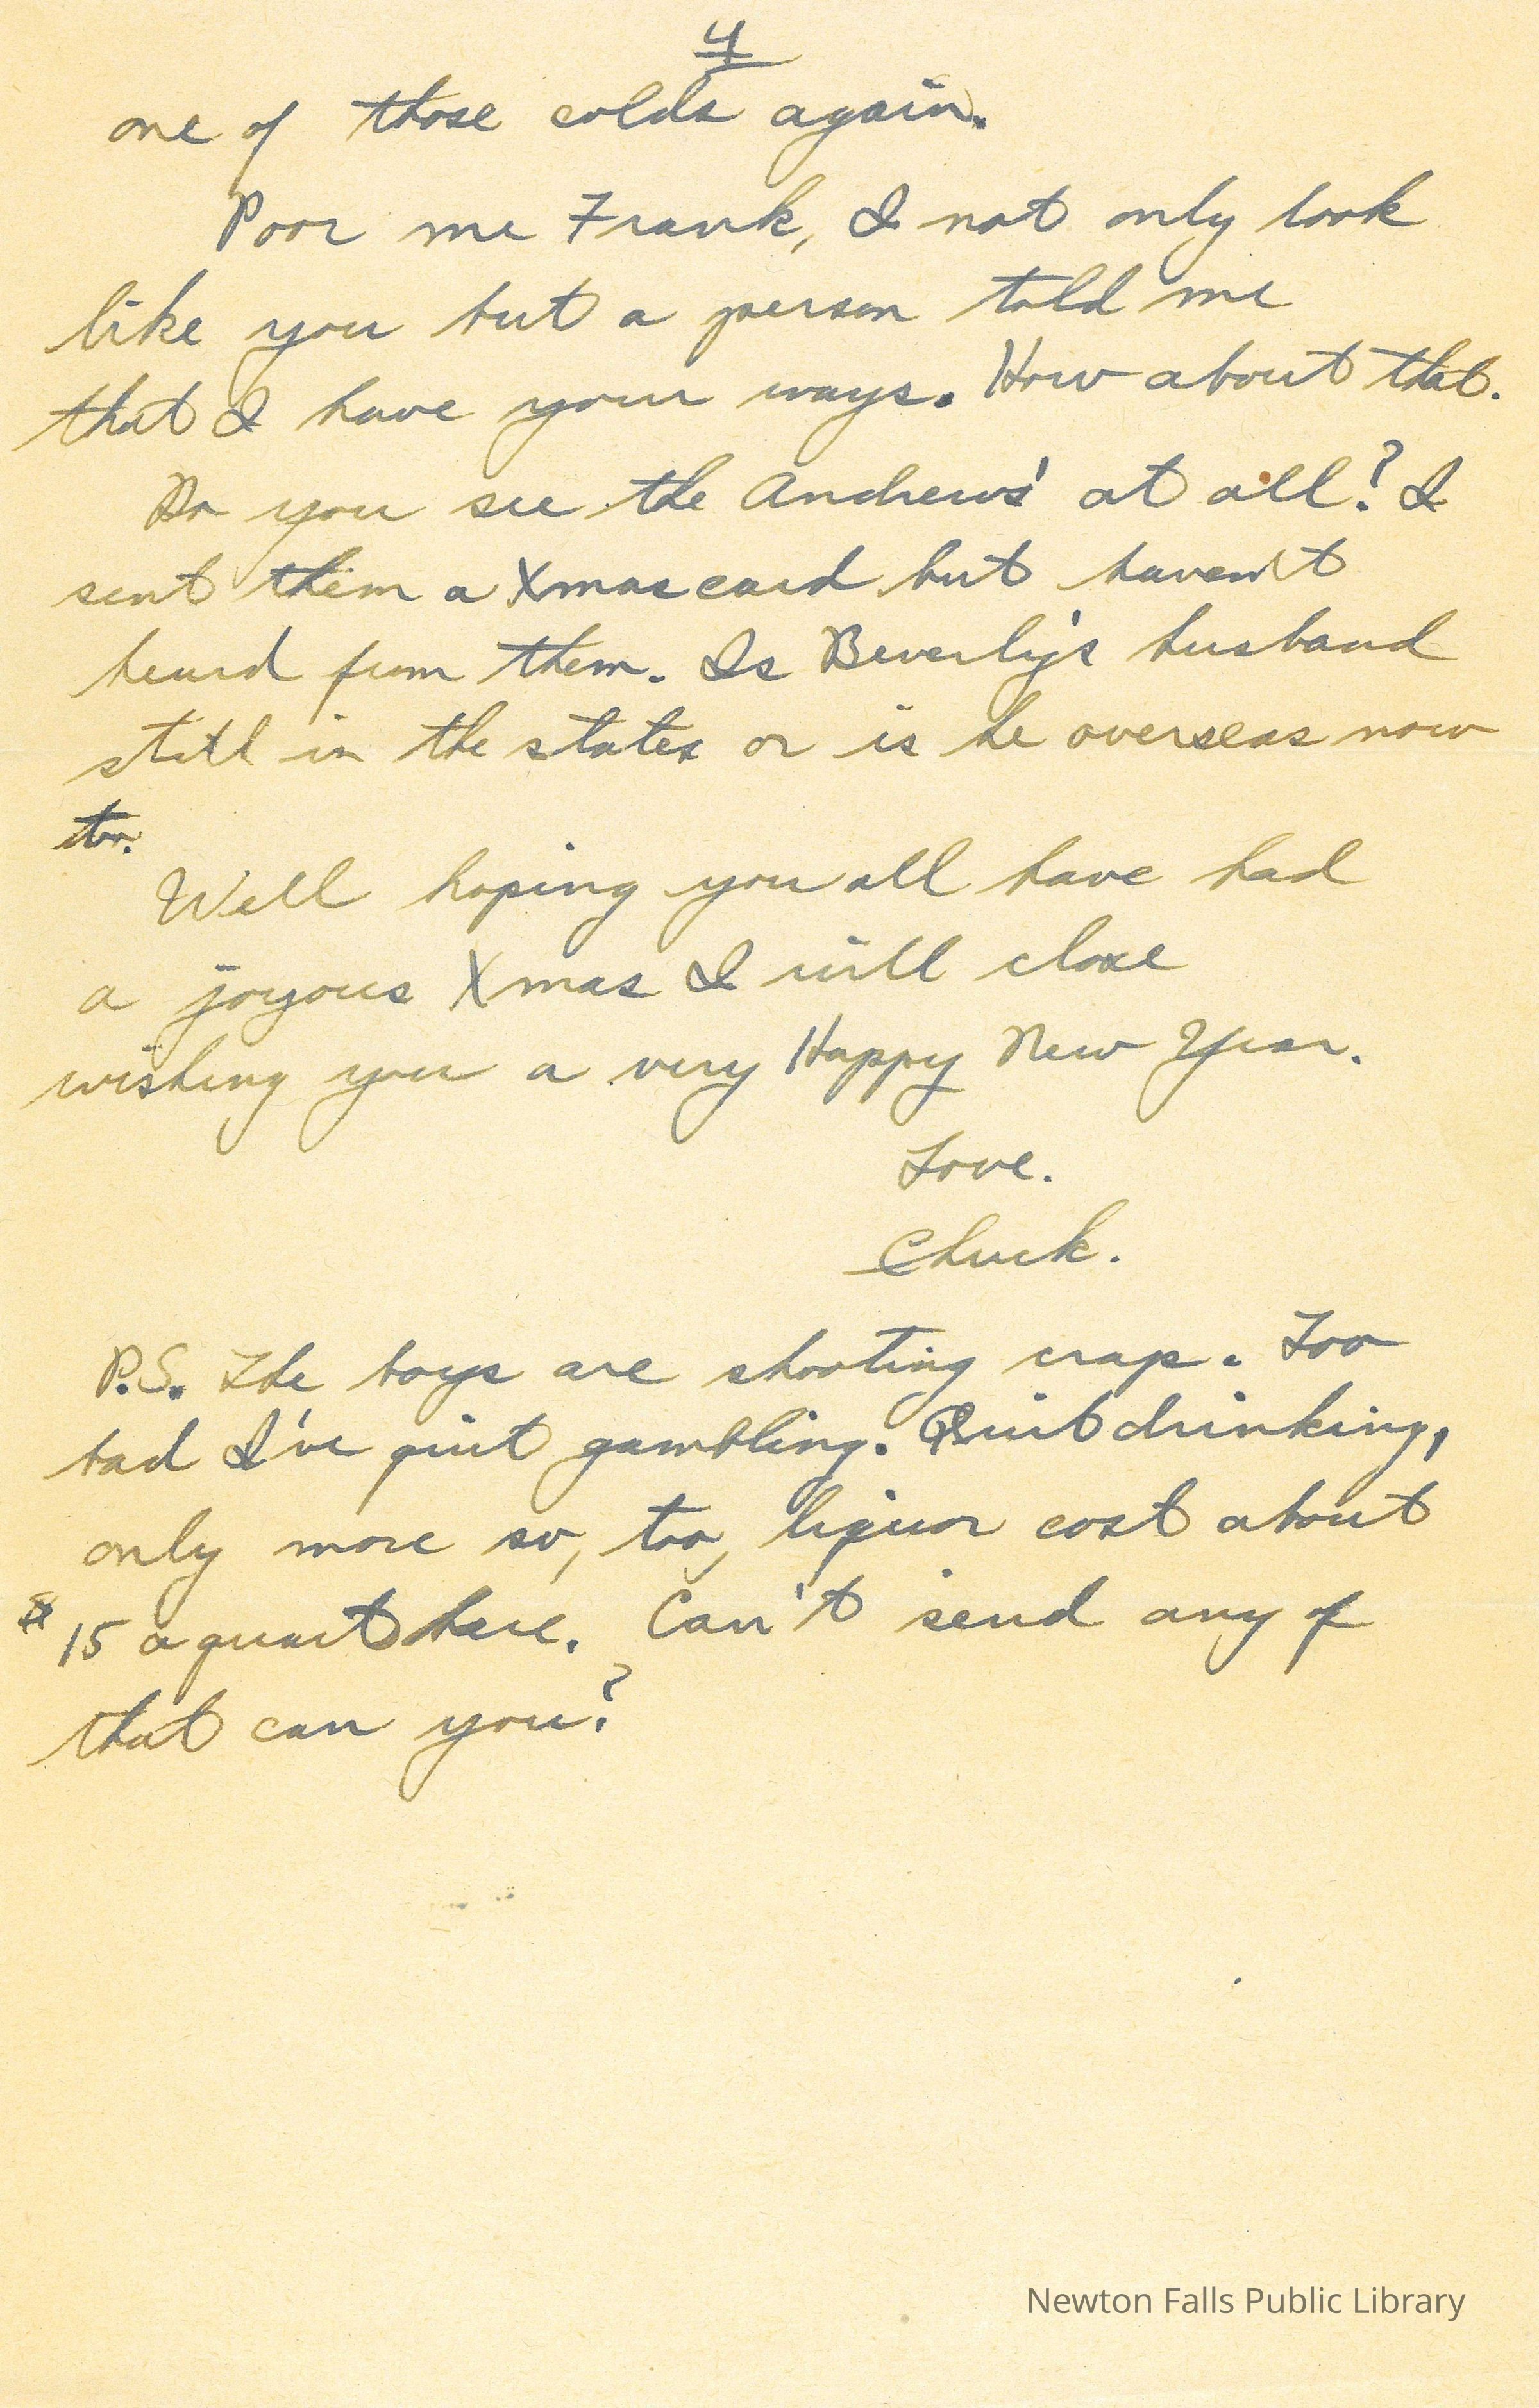 4
one of those colds again.
Poor me Frank, I not only look
like you but a person told me
that I have your ways. How about that.
Do you see the Andrews' at all? I
sent them a Xmas card but haven't
heard from them. Is Beverly's husband
still in the states or is he overseas now
too.
Well hoping you all have had
a joyous Xmas I will close
wishing you a very Happy New Year.
Love.
Chuck.
P.S. The boys are shooting crap. Too
bad I've quit gambling. Quit drinking,
only more so, too, liquor cost about
$15 a quart here. Can't send any of
that can you?
Newton Falls Public Library